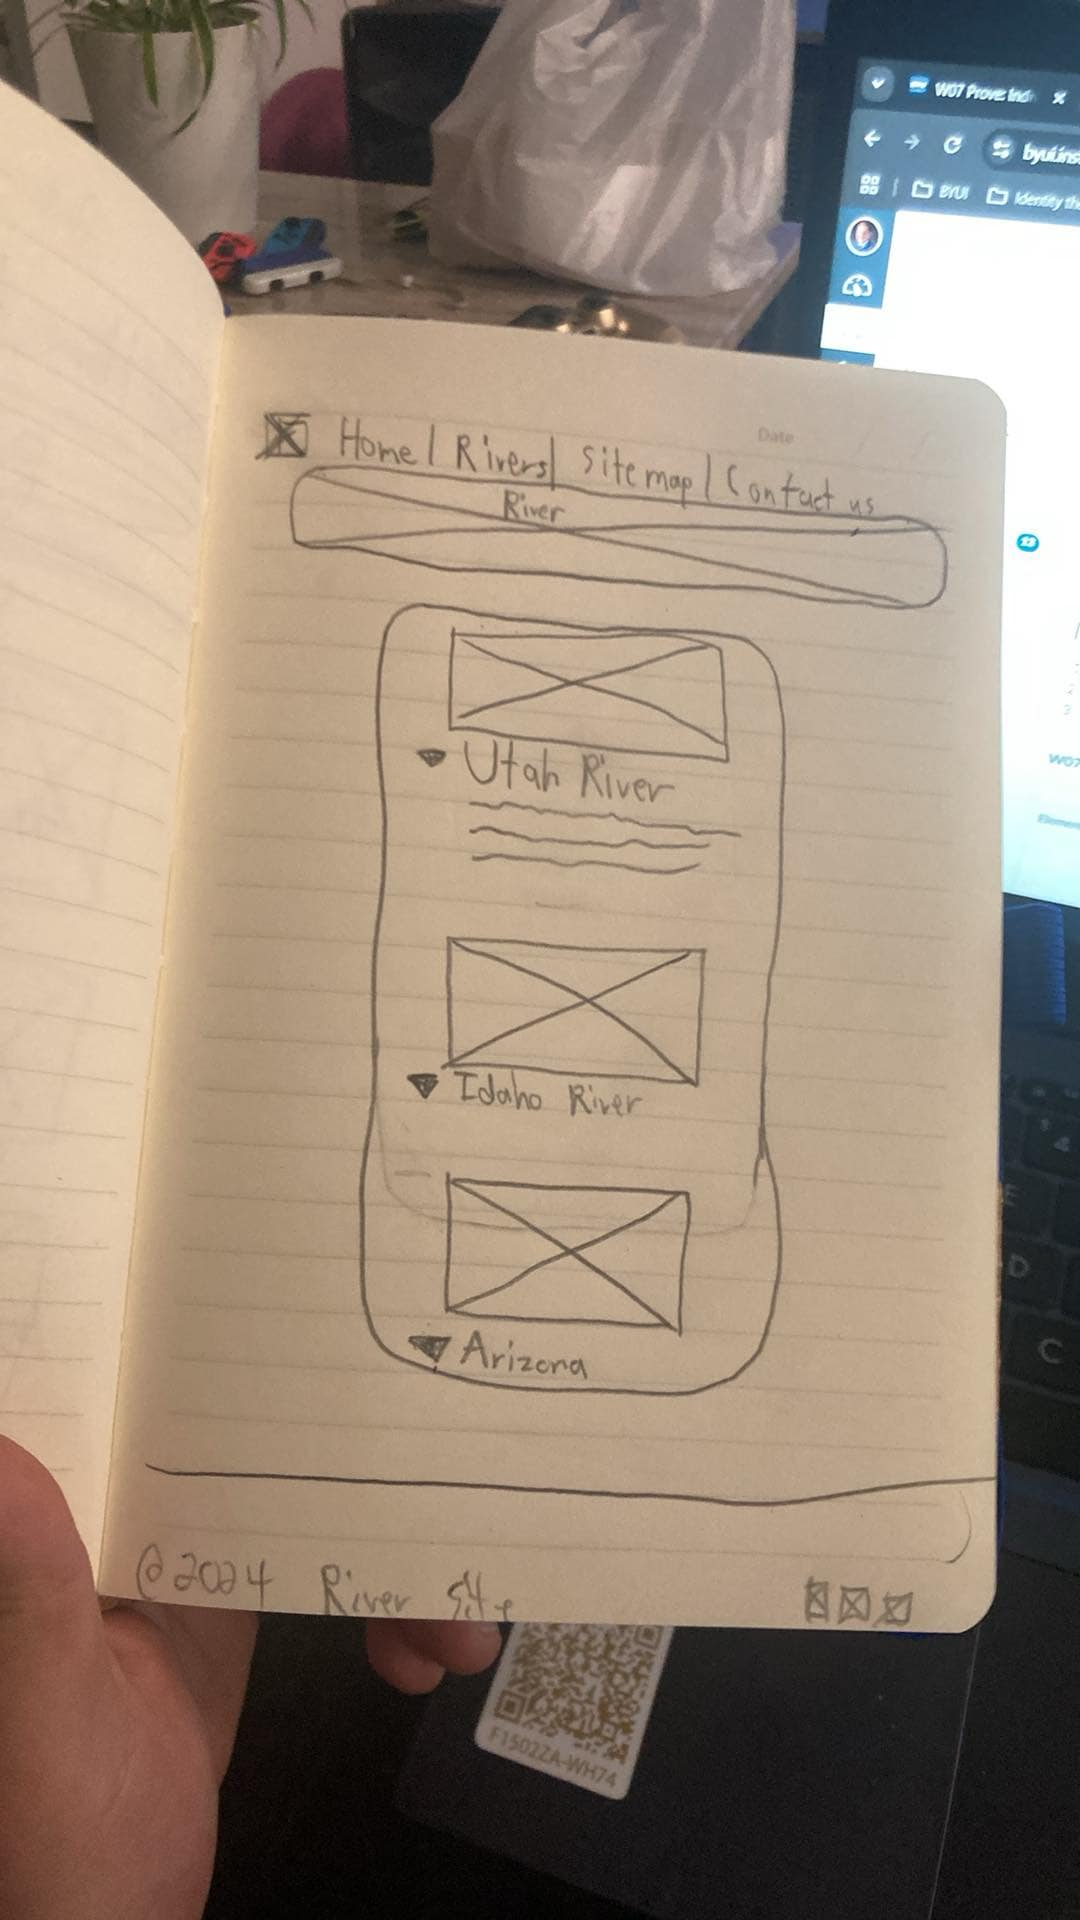 W07 Prove: Ind
byui.ins
BYUI
Identity th
Date
Home | Rivers | Sitemap | Contact us
River
Utah River
Idaho River
Arizona
@2024 River Site
W07
E
D
C
F1502ZA-WH74